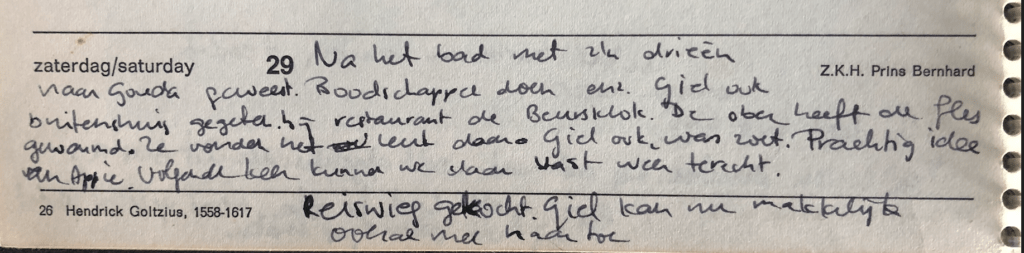 zaterdag/saturday 29 Na het bad met z'n drieën
Z.K.H. Prins Bernhard
naar Gouda geweest. Boodschappen doen enz. Giel ook
buitenshuis gegeten. in restaurant de Beursklok. De ober heeft de fles
gewarmd. Ze vonden het leuk daar. Giel ook, was zoet. Prachtig idee
van Appie. Volgende keer kunnen we daar vast weer terecht.
26 Hendrick Goltzius, 1558-1617
Reiswieg gekocht. Giel kan nu makkelijk
overal mee naar toe